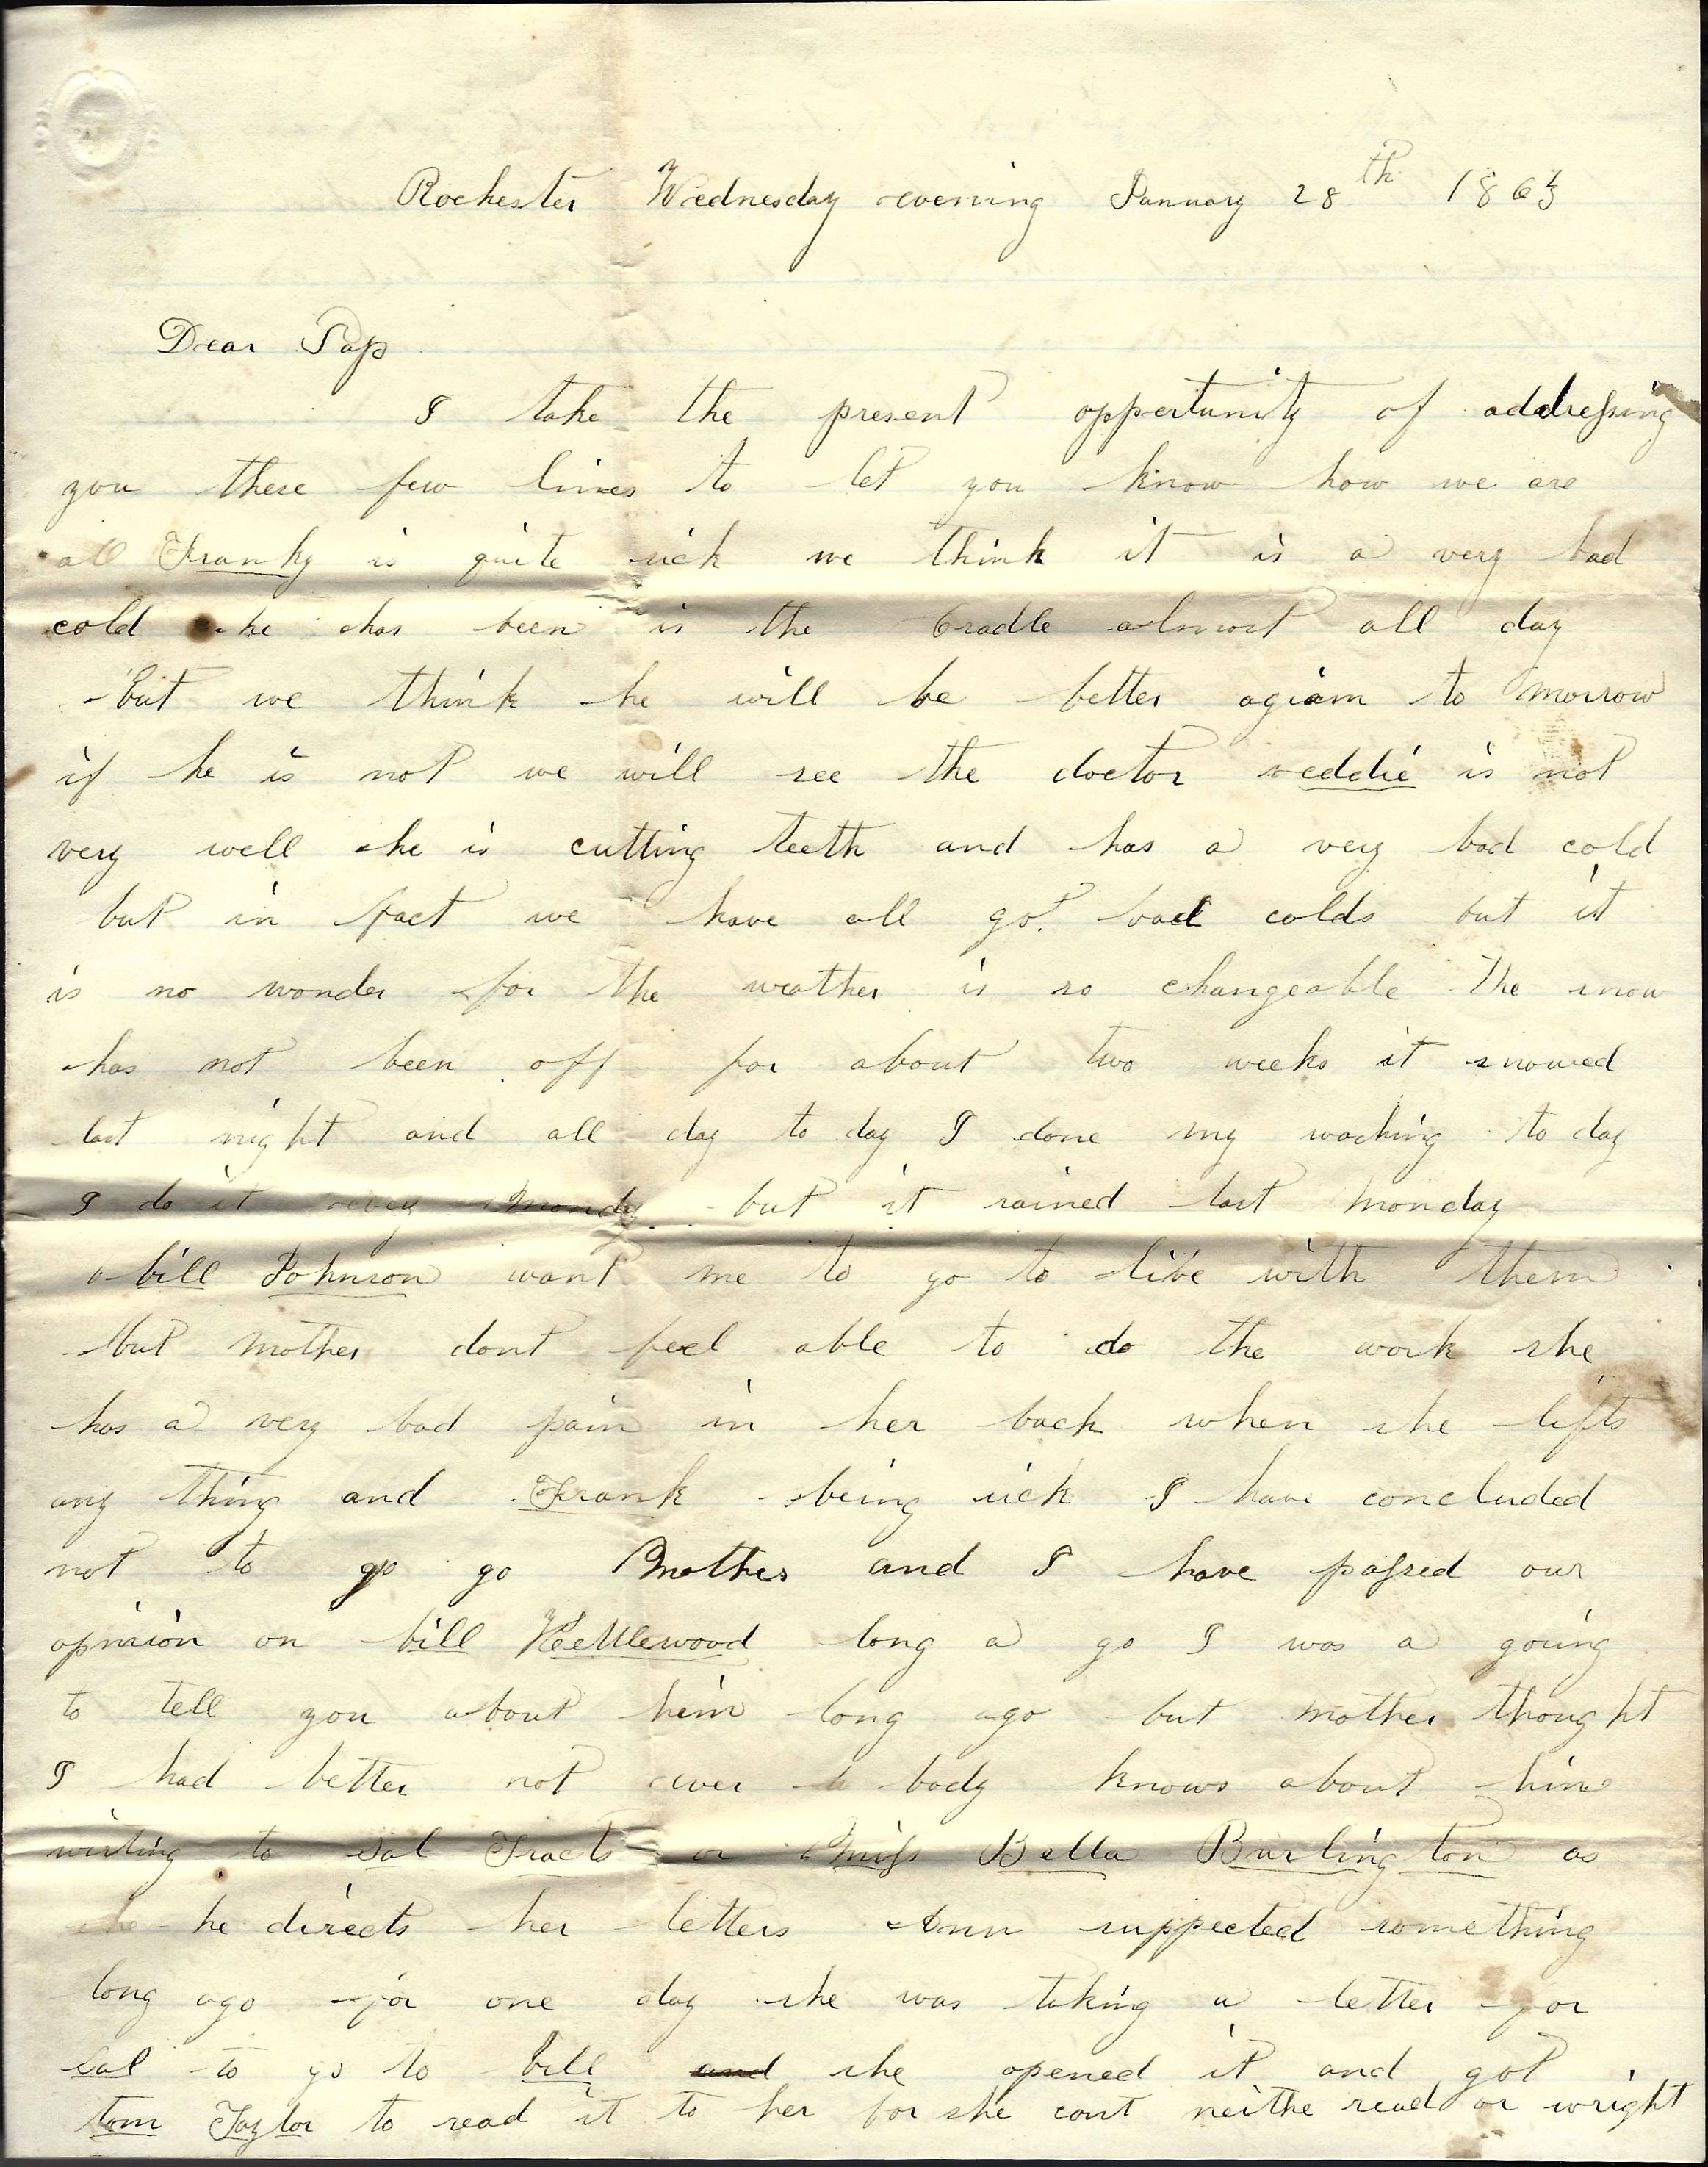 Rochester Wednesday evening January 28th 1863
Dear Pap
I take the present oppertunity of addressing
you these few lines to let you know how we are
all Franky is quite sick we think it is a very bad
cold he has been is the Cradle almost all day
but we think he will be better agiam to morrow
if he is not we will see the doctor veddie is not
very well she is cutting teeth and has a very bad cold
but in fact we have all got bad colds but it
is no wonder for the weather is so changeable the snow
has not been off for about two weeks it snowed
last night and all day to day I done my waching to day
I do it evey Mondy but it rained last monday
bill Johnson want me to go to live with them
but mother dont feel able to do the work she
has a very bad pain in her back when she lifts
any thing and Frank being sick I have concluded
not to go go Mother and I have passed our
opinion on bill Kettlewood long a go I was a going
to tell you about him long ago but mother thought
I had better not ever body knows about him
wirting to Sal Tracts or Miss Bella Burlington as
he directs her letters Ann suppected something
long ago for one day she was taking a letter for
Sal to go to bill and she opened it and got
tom Taylor to read it to her for she cant neithe read or wright